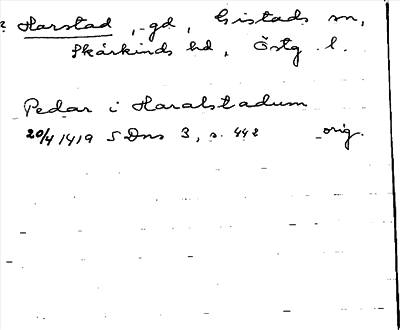 ? Harstad, -gd, Gistads sn,
Skärkinds hd, Östg. l.
Pedar i Haralstadum
20/4 1419 SDns 3, s. 442 orig.